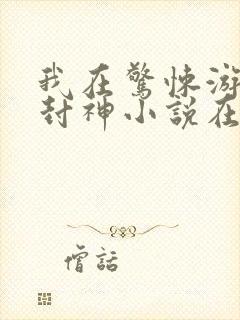 我在驚悚游
封神小說在
僧話